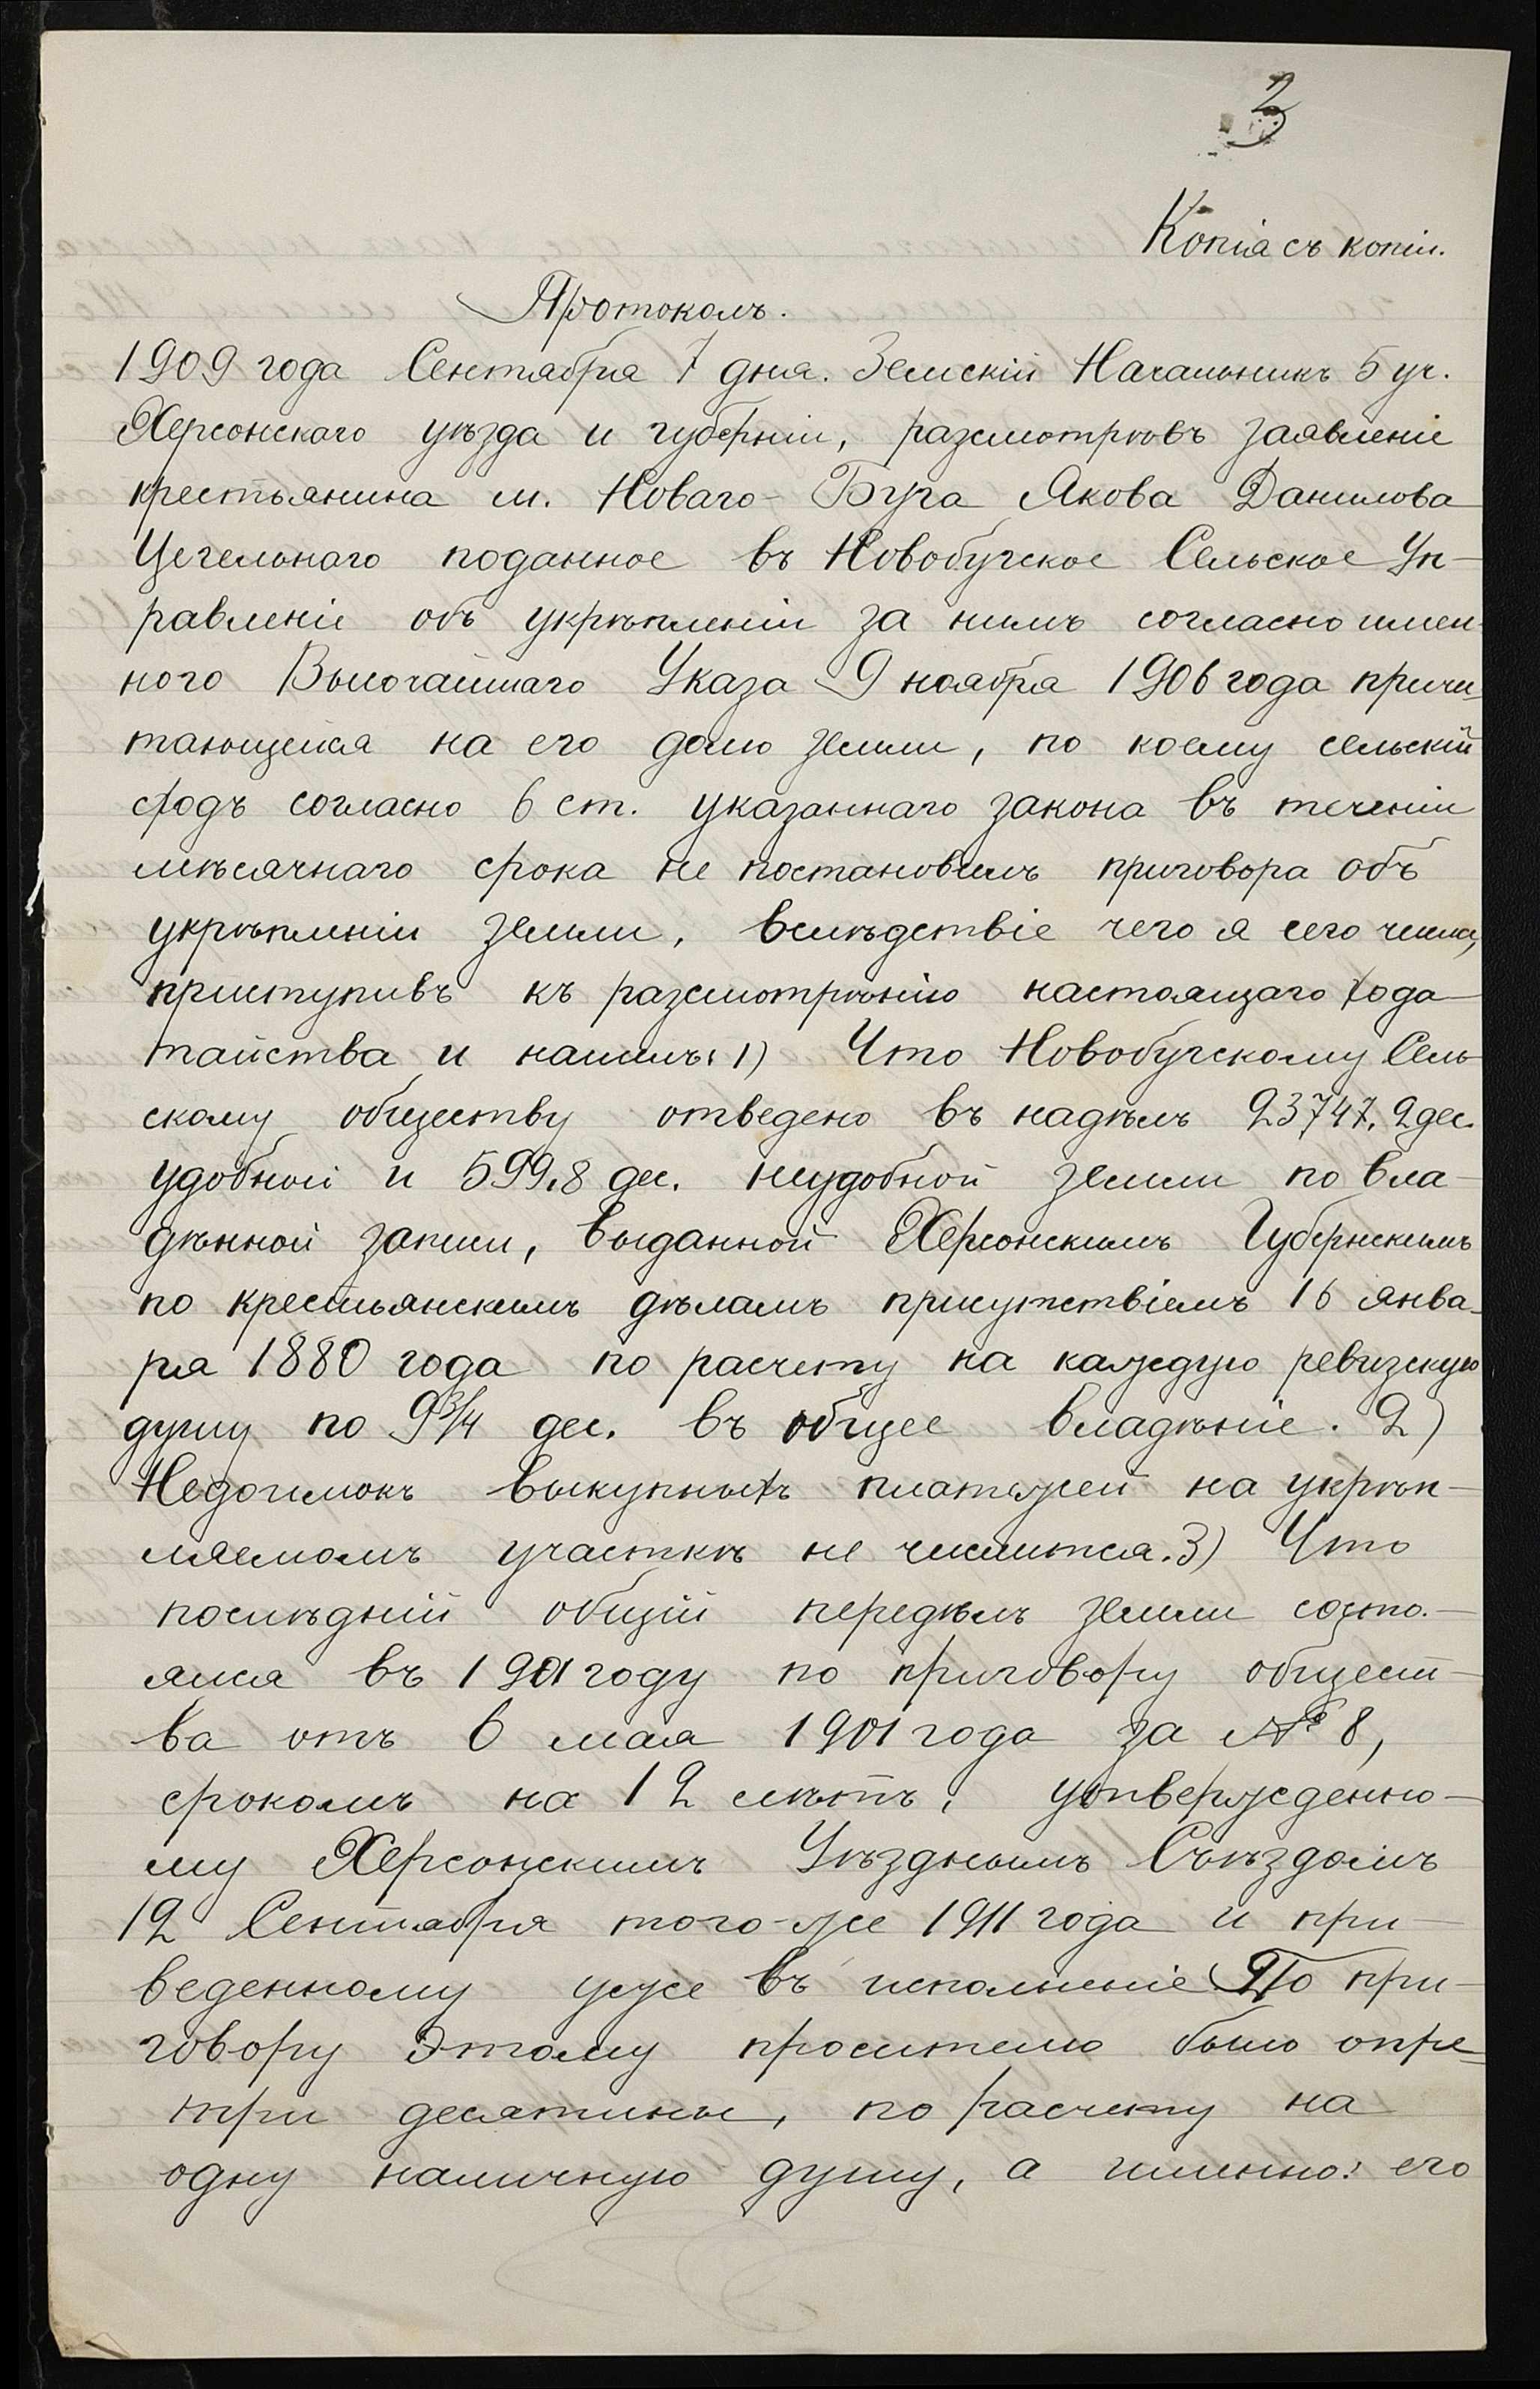 3
Копія съ копіи.
Протоколъ.
1909 года Сентября 7 дня. Земскій Начальникъ 5 уч.
Херсонскаго уѣзда и губерніи, разсмотрѣвъ заявленіе
крестьянина м. Новаго-Буга Якова Данилова
Цегельнаго поданное въ Новобугское Сельское Уп-
равленіе объ укрѣпленіи за нимъ согласно имен-
ного Высочайшаго Указа 9 ноября 1906 года причи-
тающейся на его долю земли, по коему сельскій
сходъ согласно 6 ст. указаннаго закона въ теченіи
мѣсячнаго срока не постановилъ приговора объ
укрѣпленіи земли, вслѣдствіе чего я сего числа,
приступивъ къ разсмотрѣнію настоящаго хода-
тайства и нашелъ: 1) Что Новобугскому Сель-
скому обществу отведено въ надѣлъ 23747,2 дес.
удобной и 599,8 дес. неудобной земли по вла-
дѣнной записи, выданной Херсонскимъ Губернскимъ
по крестьянскимъ дѣламъ присутствіемъ 16 янва-
ря 1880 года по расчету на каждую ревизскую
душу по 9 3/4 дес. въ общее владѣніе. 2)
Недоимокъ выкупныхъ платежей на укрѣп-
ляемомъ участкѣ не числится. 3) Что
послѣдній общій передѣлъ земли состо-
ялся въ 1901 году по приговору общест-
ва отъ 6 мая 1901 года за № 8,
срокомъ на 12 лѣтъ, утвержденно-
му Херсонскимъ Уѣзднымъ Съѣздомъ
12 Сентября того-же 1911 года и при-
веденному уже въ исполненіе По при-
говору этому просителю было опре-
три десятины, по расчету на
одну наличную душу, а именно: его